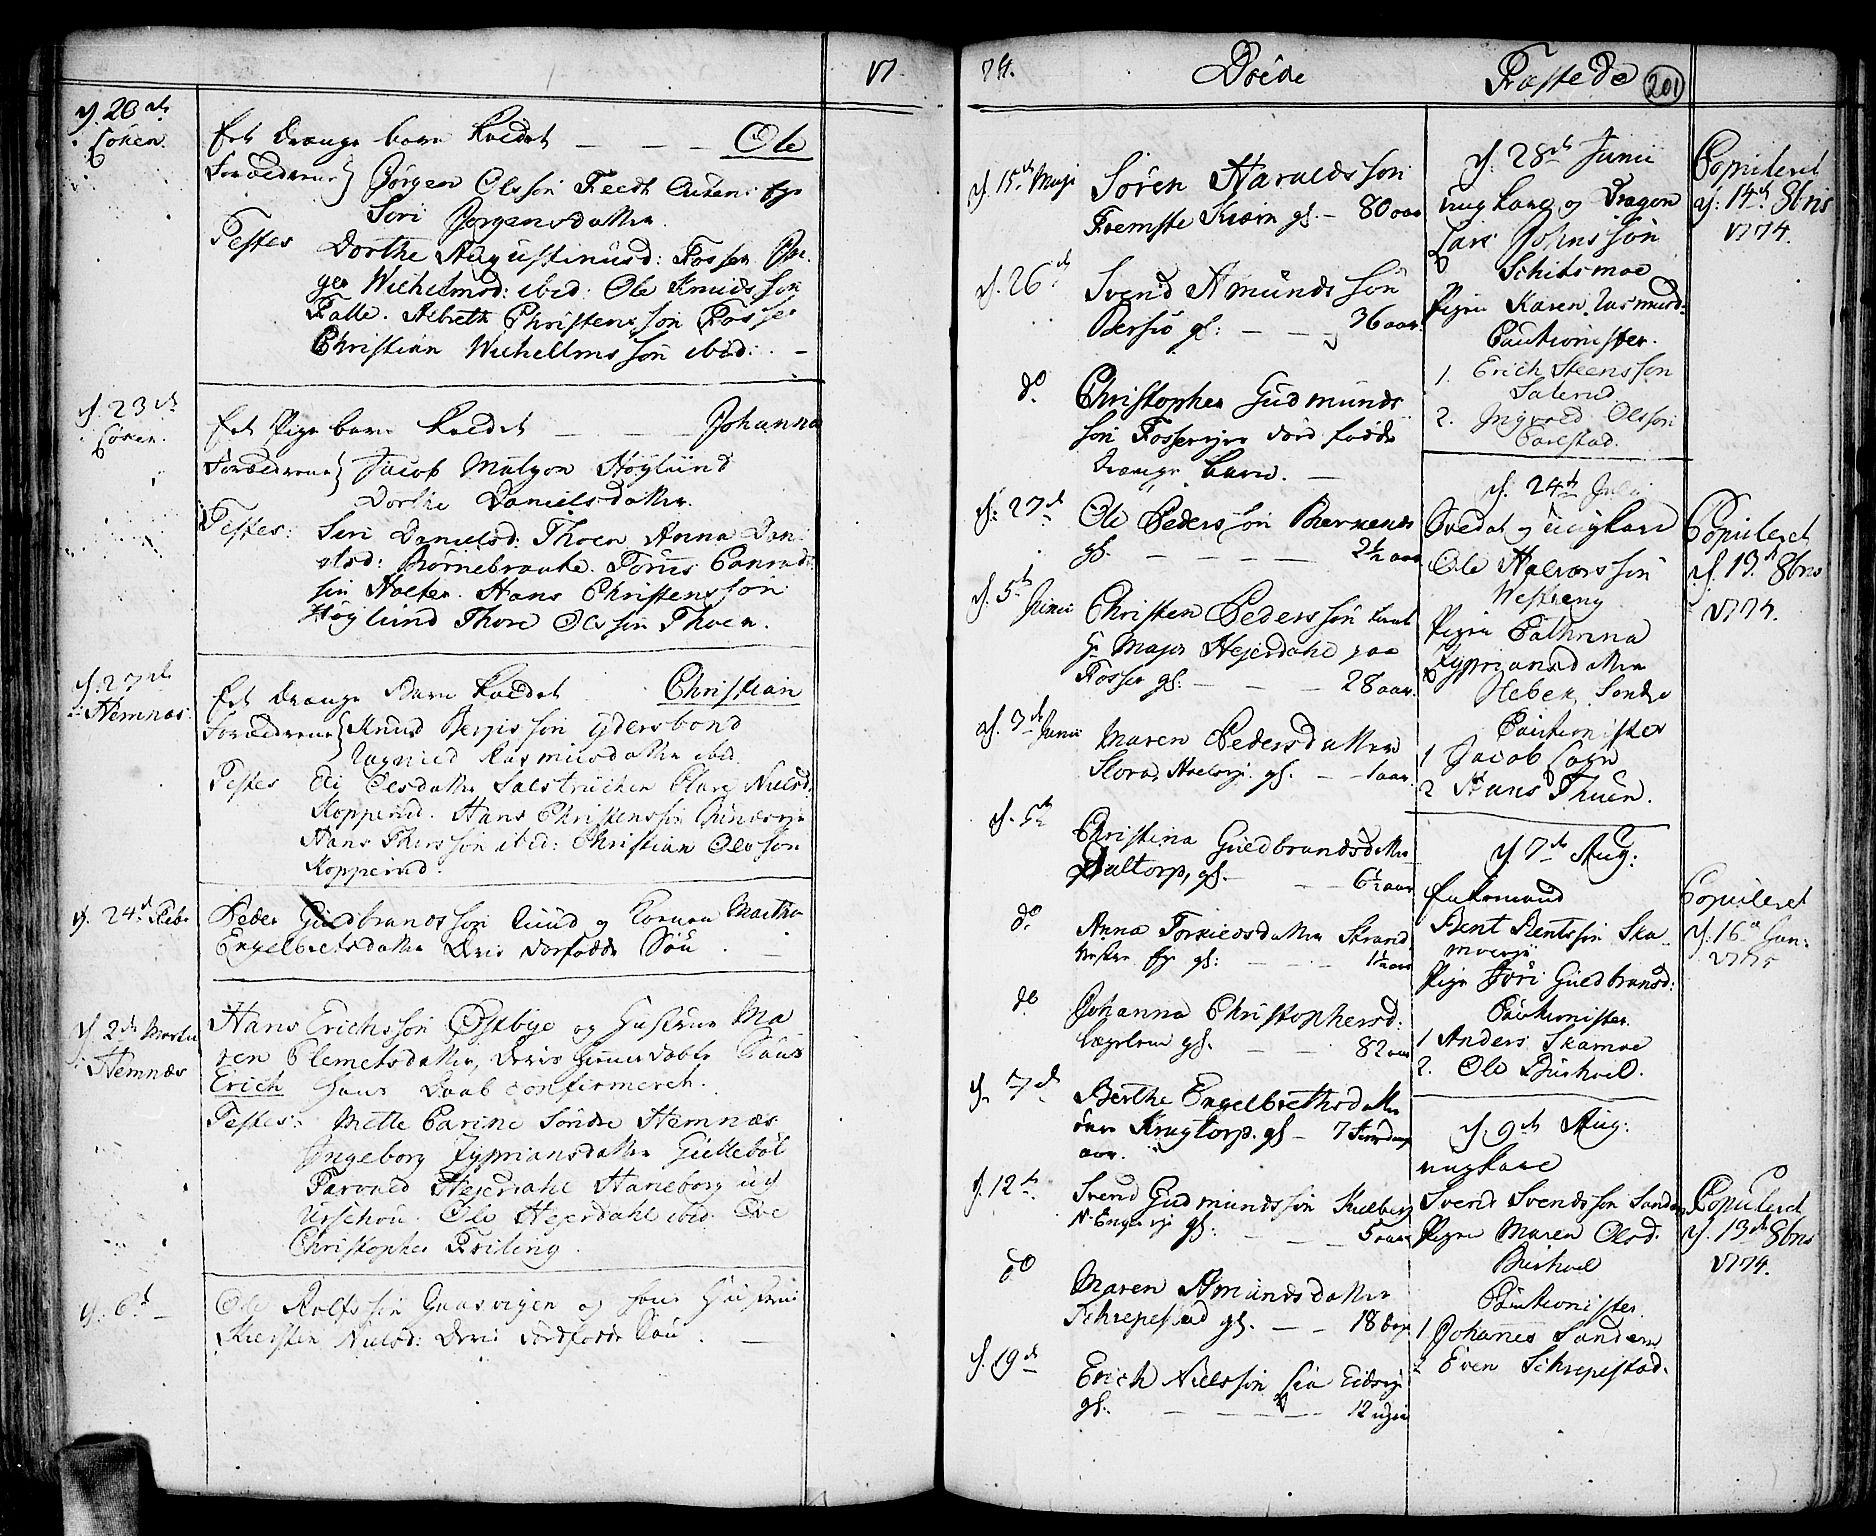 17
d. 20de
Søken.
Et Drænge barn kaldet — — — Ole
Forældrene} Jørgen Olsson Feedt Outen: eje
Siri Jørgensdatter
Testes Dorthe Augustinusd: Fosser
ger Wilhelmsd: ibid: Ole Knudsson
Falle. Albreth Christensson Fosser
Christian Wilhellmsson ibid: —
d. 23de
Søken.
Et Pige barn kaldet — — Johanna
Forældrene} Jacob Mulgon Høglund
Dorthe Danielsdatter
Testes: Siri Danielsd: Thoen Anna Dani
elsd: Børnebraate. Tønnes Conrad
sön Holter. Hans Christensson
Høglund Thore Olssön Thoen.
d. 27de
Hemnæs.
Et Drænge Barn kaldet Christian
Forældrene} Knud Børgisson Ydersbond
Ragnild Rasmusdatter ibid.
Testes Eli Olsdatter Salstruchen Clare Nielsd.
Kopperud. Hans Christenssön
Hans Iversson ibid: Christian Olsson
Kopperud.
d. 24de Febr
Peder Guldbrandsson Ruud og Konen Marthe
Engelbretsdatter Deris dødfødde Søn. —
d. 2de Martii
Hemnæs
Hans Erichsson Østbye og Hustrue Ma
ren Clemetsdatter, Deris hiemdøbte Søns
Erich hans Daab confirmeret.
Testes: Mette Carine Søndre Hemnæs
Ingeborg Zyprian̄sdatter Gullebøl
Parvald Hejerdahl Haneborg ved
Urschou. Ole Hejerdahl ibid. Ole
Christopher Friling.
d. 6te —
Ole Rolfssön Gaasvigen og hans Hustrue
Kiersten Nielsd: Deris dødfødde Søn. —
74.
Døede
d. 15de Maji Søren Haraldsson
Fremste Kiærn gl. — 80 aar
d. 26de Svend Amundssön
Børsiø gl: — — 36 aar.
do Christopher Gudmunds
sön Fosserejes dødfødde
Drænge barn. —
d. 27de Ole Pedersson Bierkenes
gl. — — — 2½ aar
d. 5te Junii Christen Pederssön hos
Hr Major Hejerdahl paa
Fosser gl: — — 28 aar.
d. 3de Junii Maren Pedersdatter
Slora, Holseje. gl. — — 1 aar.
d. 5te Christina Guldbrandsdatter
Aaltorp, gl. — — 6½ aar
do Anna Torkildsdatter Strand
gl: — — 1½ aar
do Johanna Christophersd:
gl. — — 82 aar
d. 7de Berthe Engelbrethsdatter
Krugtorp. gl — 7 Fierding
aar.
d. 12te Svend Gudmundssön Kielberg
N. Enger eje gl: — — 5 aar
do Maren Amundsdatter
Schrepestad gl. — — 18 dage
d. 19de Erich Nielssön Lia Eidseje
gl. — — — 12 uger
Fæstede 201
d. 28de Junii
ungkarl og Dragon
Lars Johnssön
Schitsmoe
Pigen Karen Rasmusd:
Cautionister.
1. Erich Steensson
Saterud.
2. Ingvold Olsson
Carlstad.
Copuleret
d: 14de 8bris
1774.
d. 24de Julii
Soldat og ungkarl
Ole Halvorssön
Westreng
Pigen Cathrina
Zypriansdatter
Heber Søndre
Cautionister
1 Jacob Løgn
2 Hans Thuen.
Copuleret
d. 13de 8bris
1774.
d 7de Aug:
Enkemand
Bent Bentssön Ska
moeeje
Pige Jøri Guldbrandsd:
Cautionister.
1 Anders Skamoe
2. Ole Buskoel.
Copuleret
d. 16de Jan:
1775
d 9de Aug:
ungkarl
Svend Svendssön Sanden
Pigen Maren Olsd.
Buskoel
Cautionister
1 Johannes Sanden
2 Even Schrepestad.
Copuleret
d. 13de 8bris
1774.